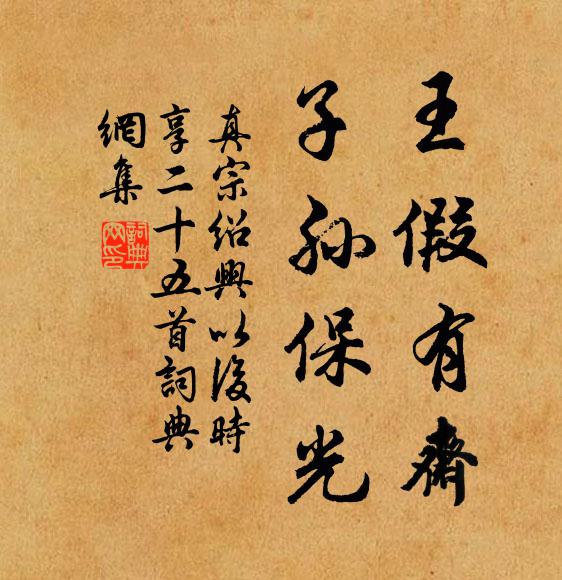 王假有齋
子孫保光
真宗紹興以後時
享二十五首詞典
網集
詞典
網印